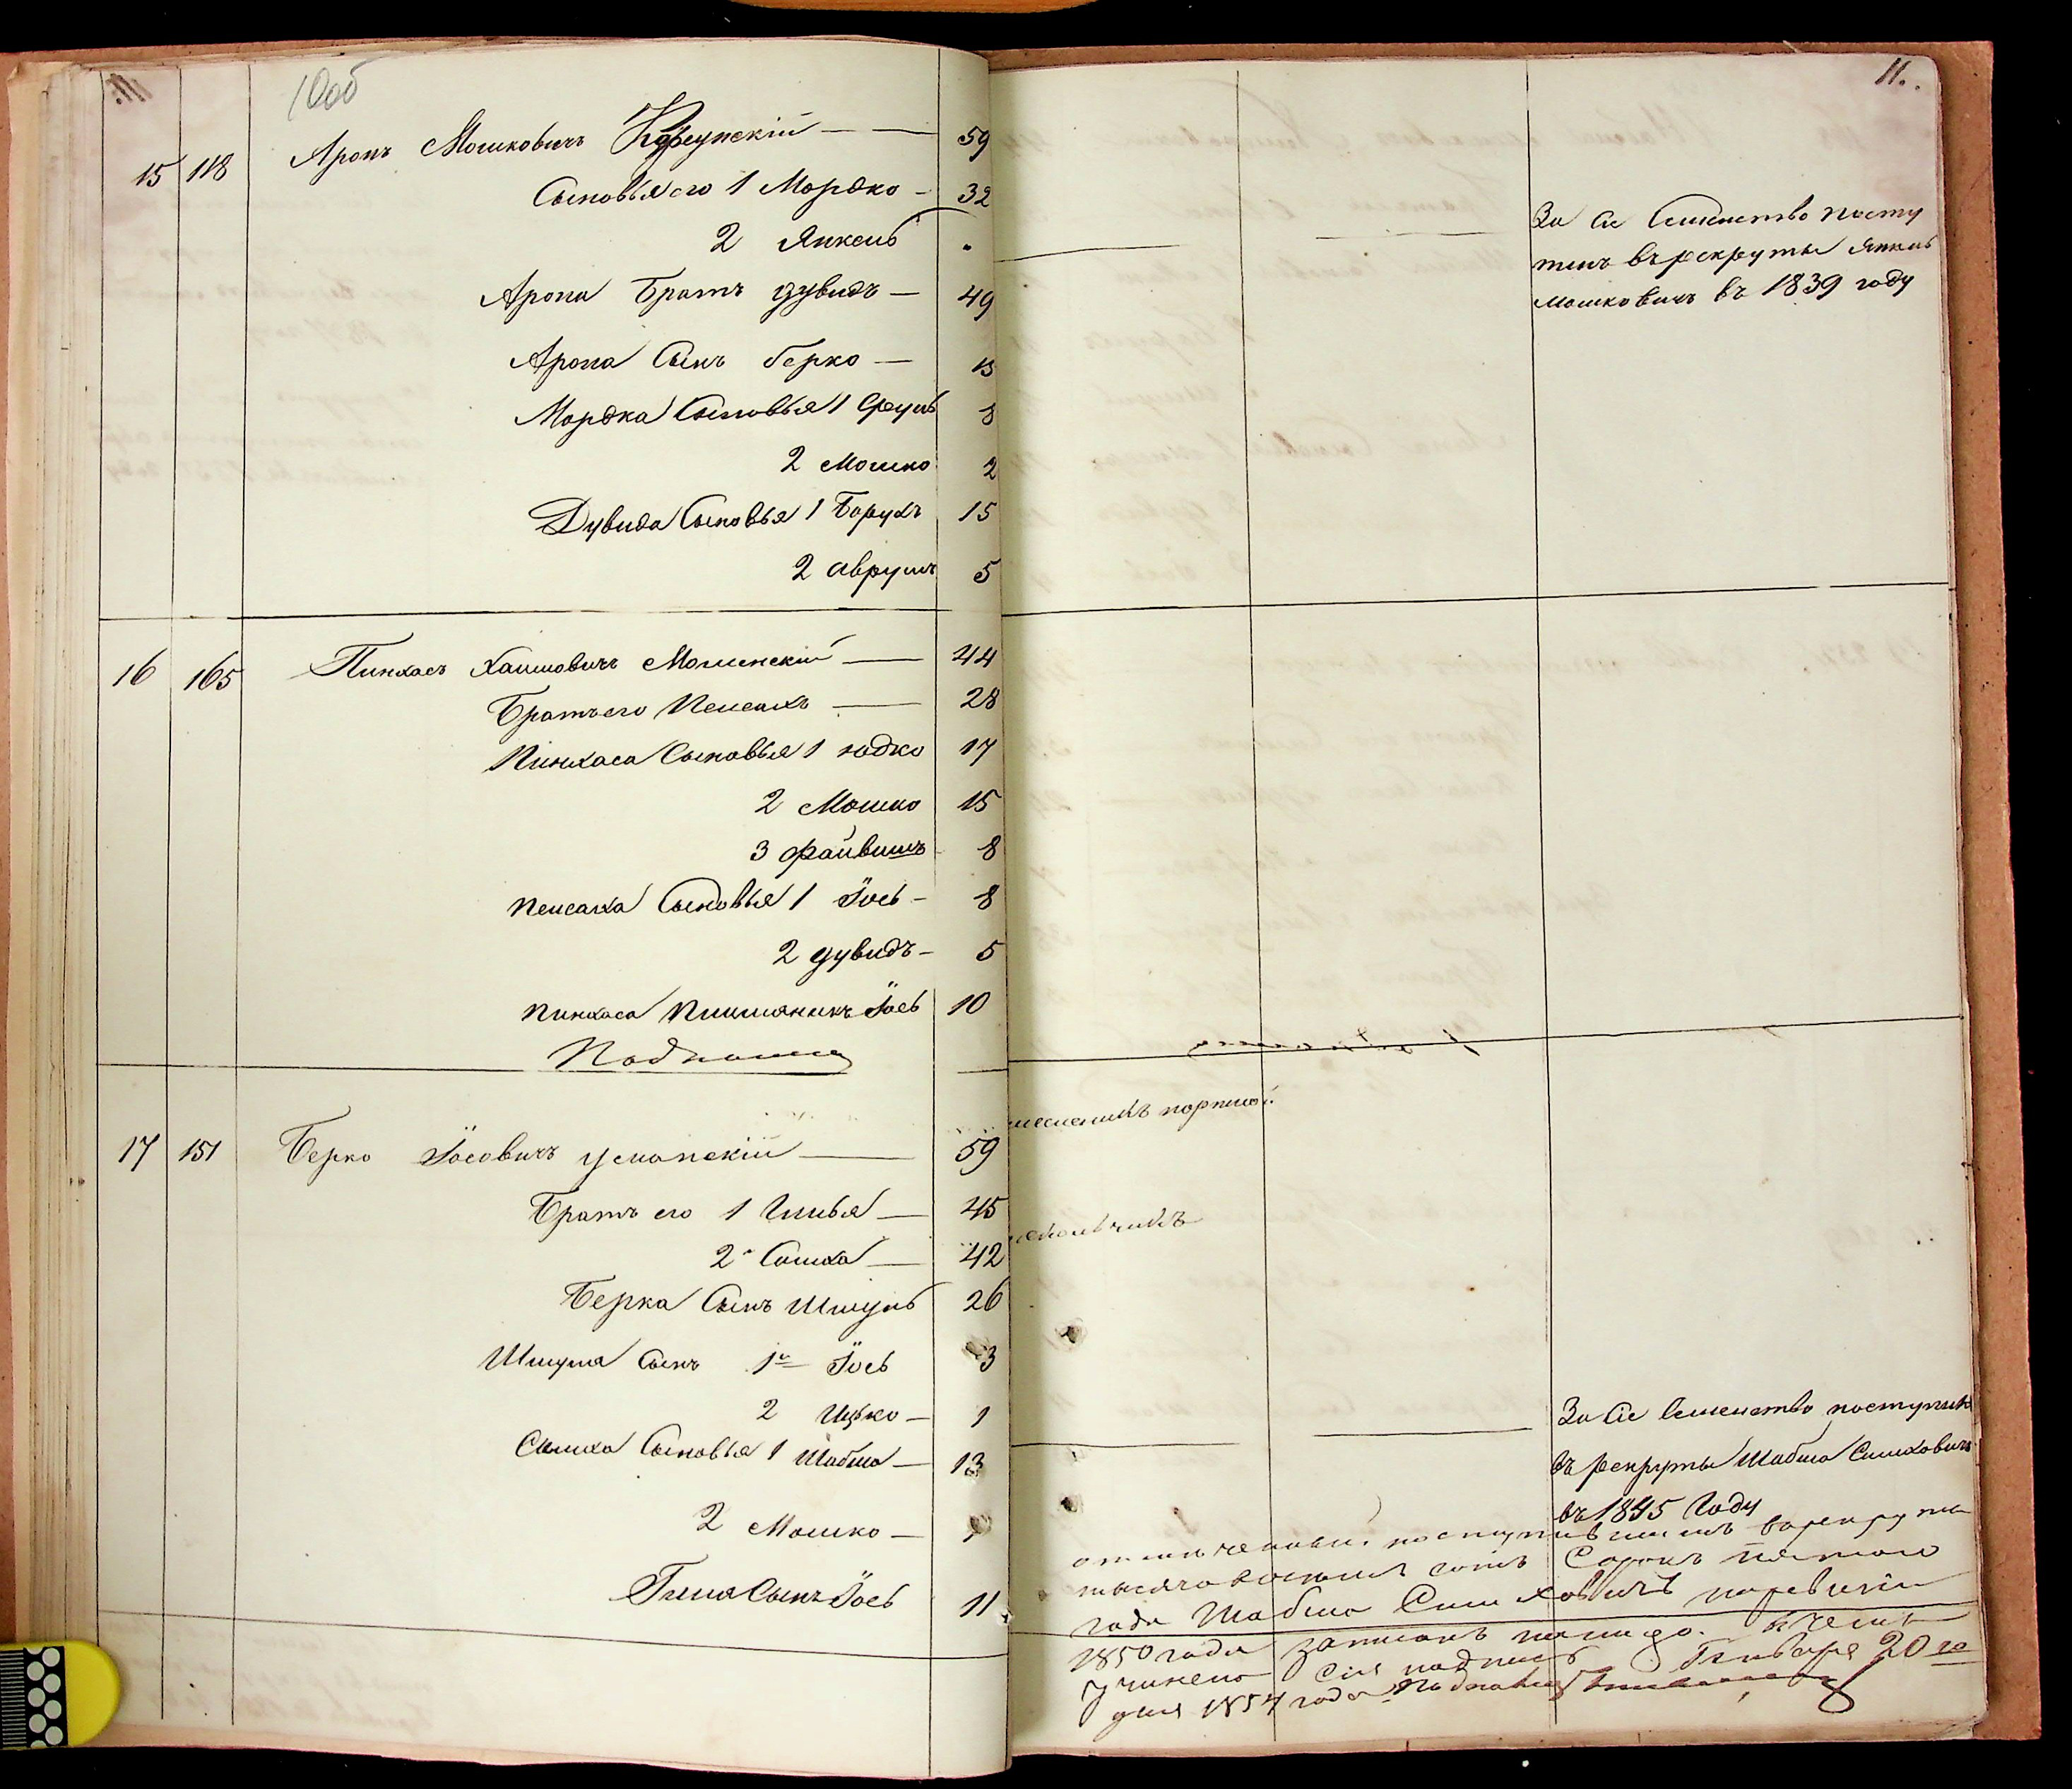 10 об
15 118 Аронъ Мошковичъ Корсунскій — 59
Сыновья его 1 Мордко - 32
2 Янкель
Арона Братъ дувидъ — 49
Арона Сынъ берко — 13
Мордка Сыновья 1 Сруль 8
2 Мошко 2
Дувида Сыновья 1 Борухъ 15
2 аврумъ 5
16 165 Пинхасъ Хаимовичъ Мошенскій — 44
Братъ его Пейсахъ — 28
Пинхаса Сыновья 1 юдко 17
2 Мошко 15
3 файвишъ 8
Пейсаха Сыновья 1 Іось - 8
2 дувидъ - 5
Пинхаса Племяникъ Іось 10
17 151 Берко Іосовичъ усманскій — 59
Братъ его 1 — 45
2й Симха — 42
Берка Сынъ Шмуль 26
Шмуля Сынъ 1й Іось 3
2 Ицько — 1
Симха Сыновья 1 Шабша — 13
2 Мошко —
Сынъ Іось 11
11.
За Се Семейство посту
пилъ въ рекруты Янкель
мошковичъ въ 1839 году
портной
За Се Семейство поступилъ
въ рекруты Шабша Симховичъ
въ 1845 Году
поступившимъ въ рекруты
тысяча восемьсотъ Сорокъ пятого
года Шабша Симховичъ по ревизіи
1850 года записанъ
учинено Сія надпись Января 20 го
дня 1854 года